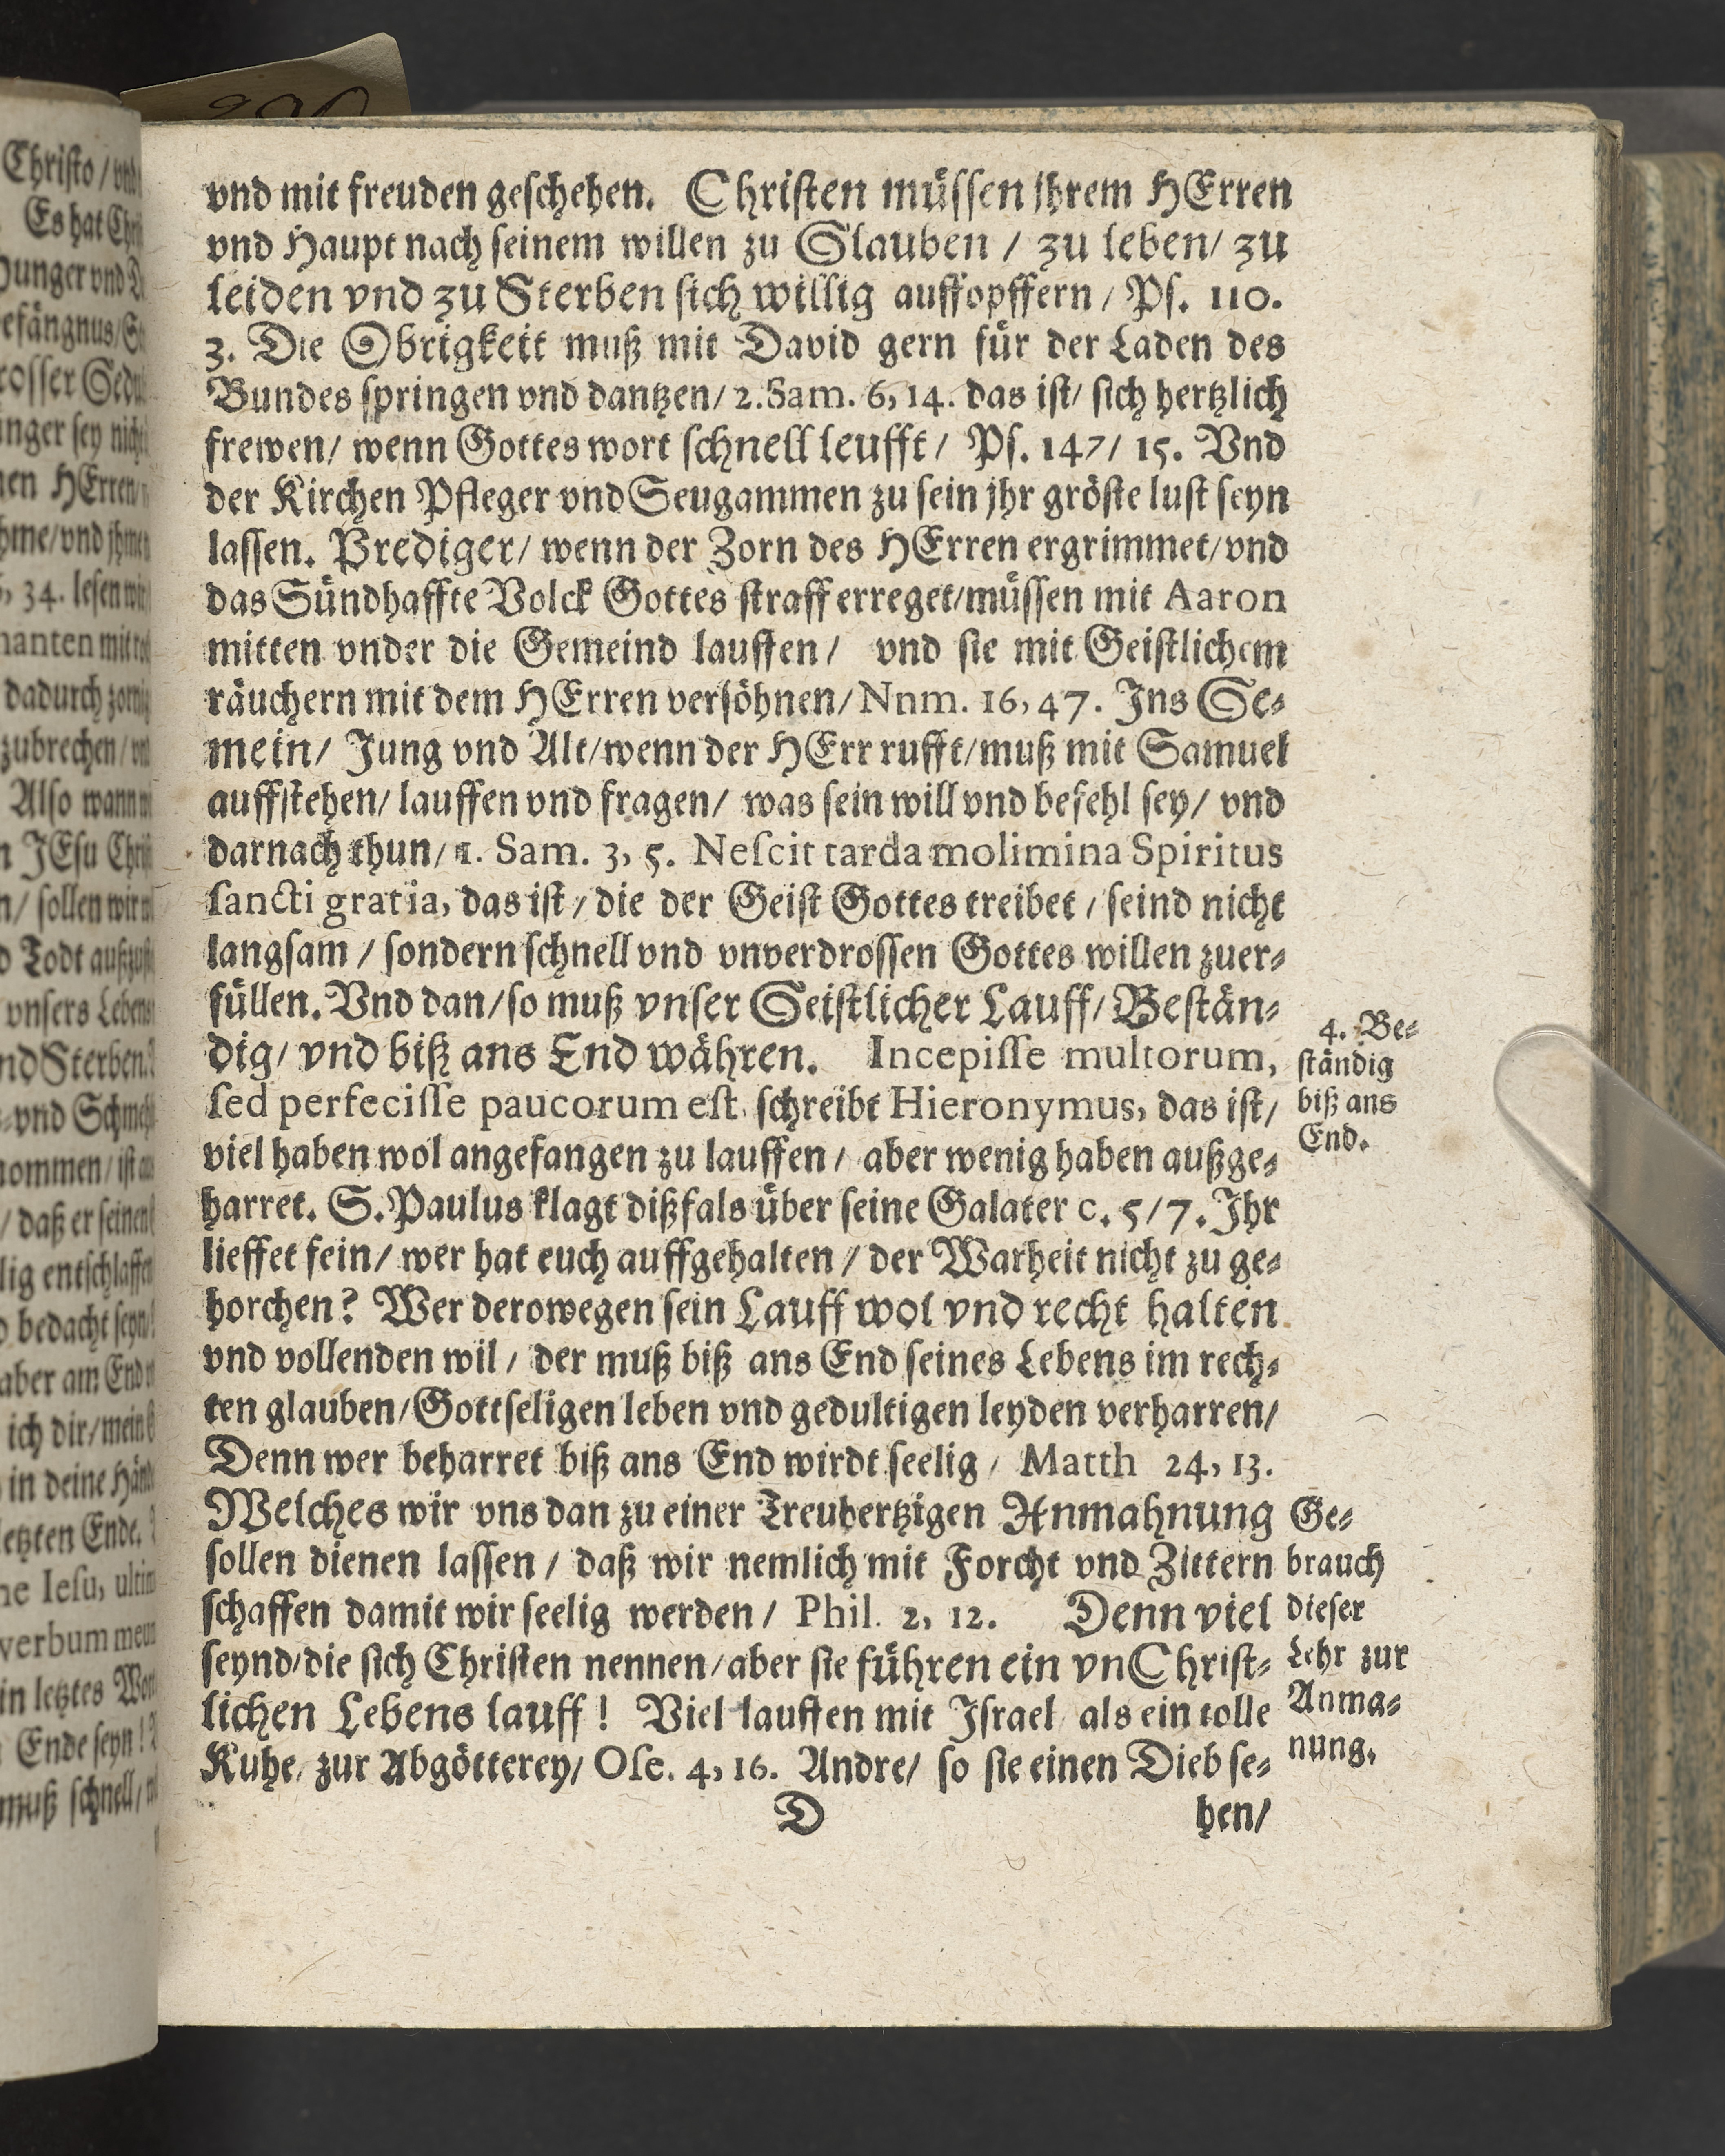 vnd mit freuden geschehen. Christen müssen jhrem HErren
vnd Haupt nach seinem willen zu Glauben / zu leben / zu
leiden vnd zu Sterben sich willig auffopffern / Ps. 110.
3. Die Obrigkeit muß mit David gern für der Laden des
Bundes springen vnd dantzen / 2. Sam. 6, 14. das ist / sich hertzlich
frewen / wenn Gottes wort schnell leufft / Ps. 147 / 15. Vnd
der Kirchen Pfleger vnd Seugammen zu sein jhr gröste lust seyn
lassen. Prediger / wenn der Zorn des HErren ergrimmet / vnd
das Sündhaffte Volck Gottes straff erreget / müssen mit Aaron
mitten vnder die Gemeind lauffen / vnd sie mit Geistlichem
räuchern mit dem HErren versöhnen / Nnm. 16, 47. Ins Ge-
mein / Jung vnd Alt / wenn der HErr rufft / muß mit Samuel
auffstehen / lauffen vnd fragen / was sein will vnd befehl sey / vnd
darnach thun / 1. Sam. 3, 5. Nescit tarda molimina Spiritus
sancti gratia, das ist / die der Geist Gottes treibet / seind nicht
langsam / sondern schnell vnd vnverdrossen Gottes willen zuer-
füllen. Vnd dan / so muß vnser Geistlicher Lauff / Bestän-
dig / vnd biß ans End währen. Incepisse multorum,
sed perfecisse paucorum est, schreibt Hieronymus, das ist /
viel haben wol angefangen zu lauffen / aber wenig haben außge-
harret. S. Paulus klagt dißfals über seine Galater c. 5 / 7. Ihr
lieffet fein / wer hat euch auffgehalten / der Warheit nicht zu ge-
horchen? Wer derowegen sein Lauff wol vnd recht halten
vnd vollenden wil / der muß biß ans End seines Lebens im rech-
ten glauben / Gottseligen leben vnd gedultigen leyden verharren /
Denn wer beharret biß ans End wirdt seelig / Matth 24, 13.
Welches wir vns dan zu einer Treuhertzigen Anmahnung
sollen dienen lassen / daß wir nemlich mit Forcht vnd Zittern
schaffen damit wir seelig werden / Phil. 2, 12. Denn viel
seynd / die sich Christen nennen / aber sie führen ein vnChrist-
lichen Lebens lauff! Viel lauffen mit Israel als ein tolle
Kuhe / zur Abgötterey / Ose. 4, 16. Andre / so sie einen Dieb se-
D hen /
4. Be-
ständig
biß ans
End.
Ge-
brauch
dieser
Lehr zur
Anma-
nung.